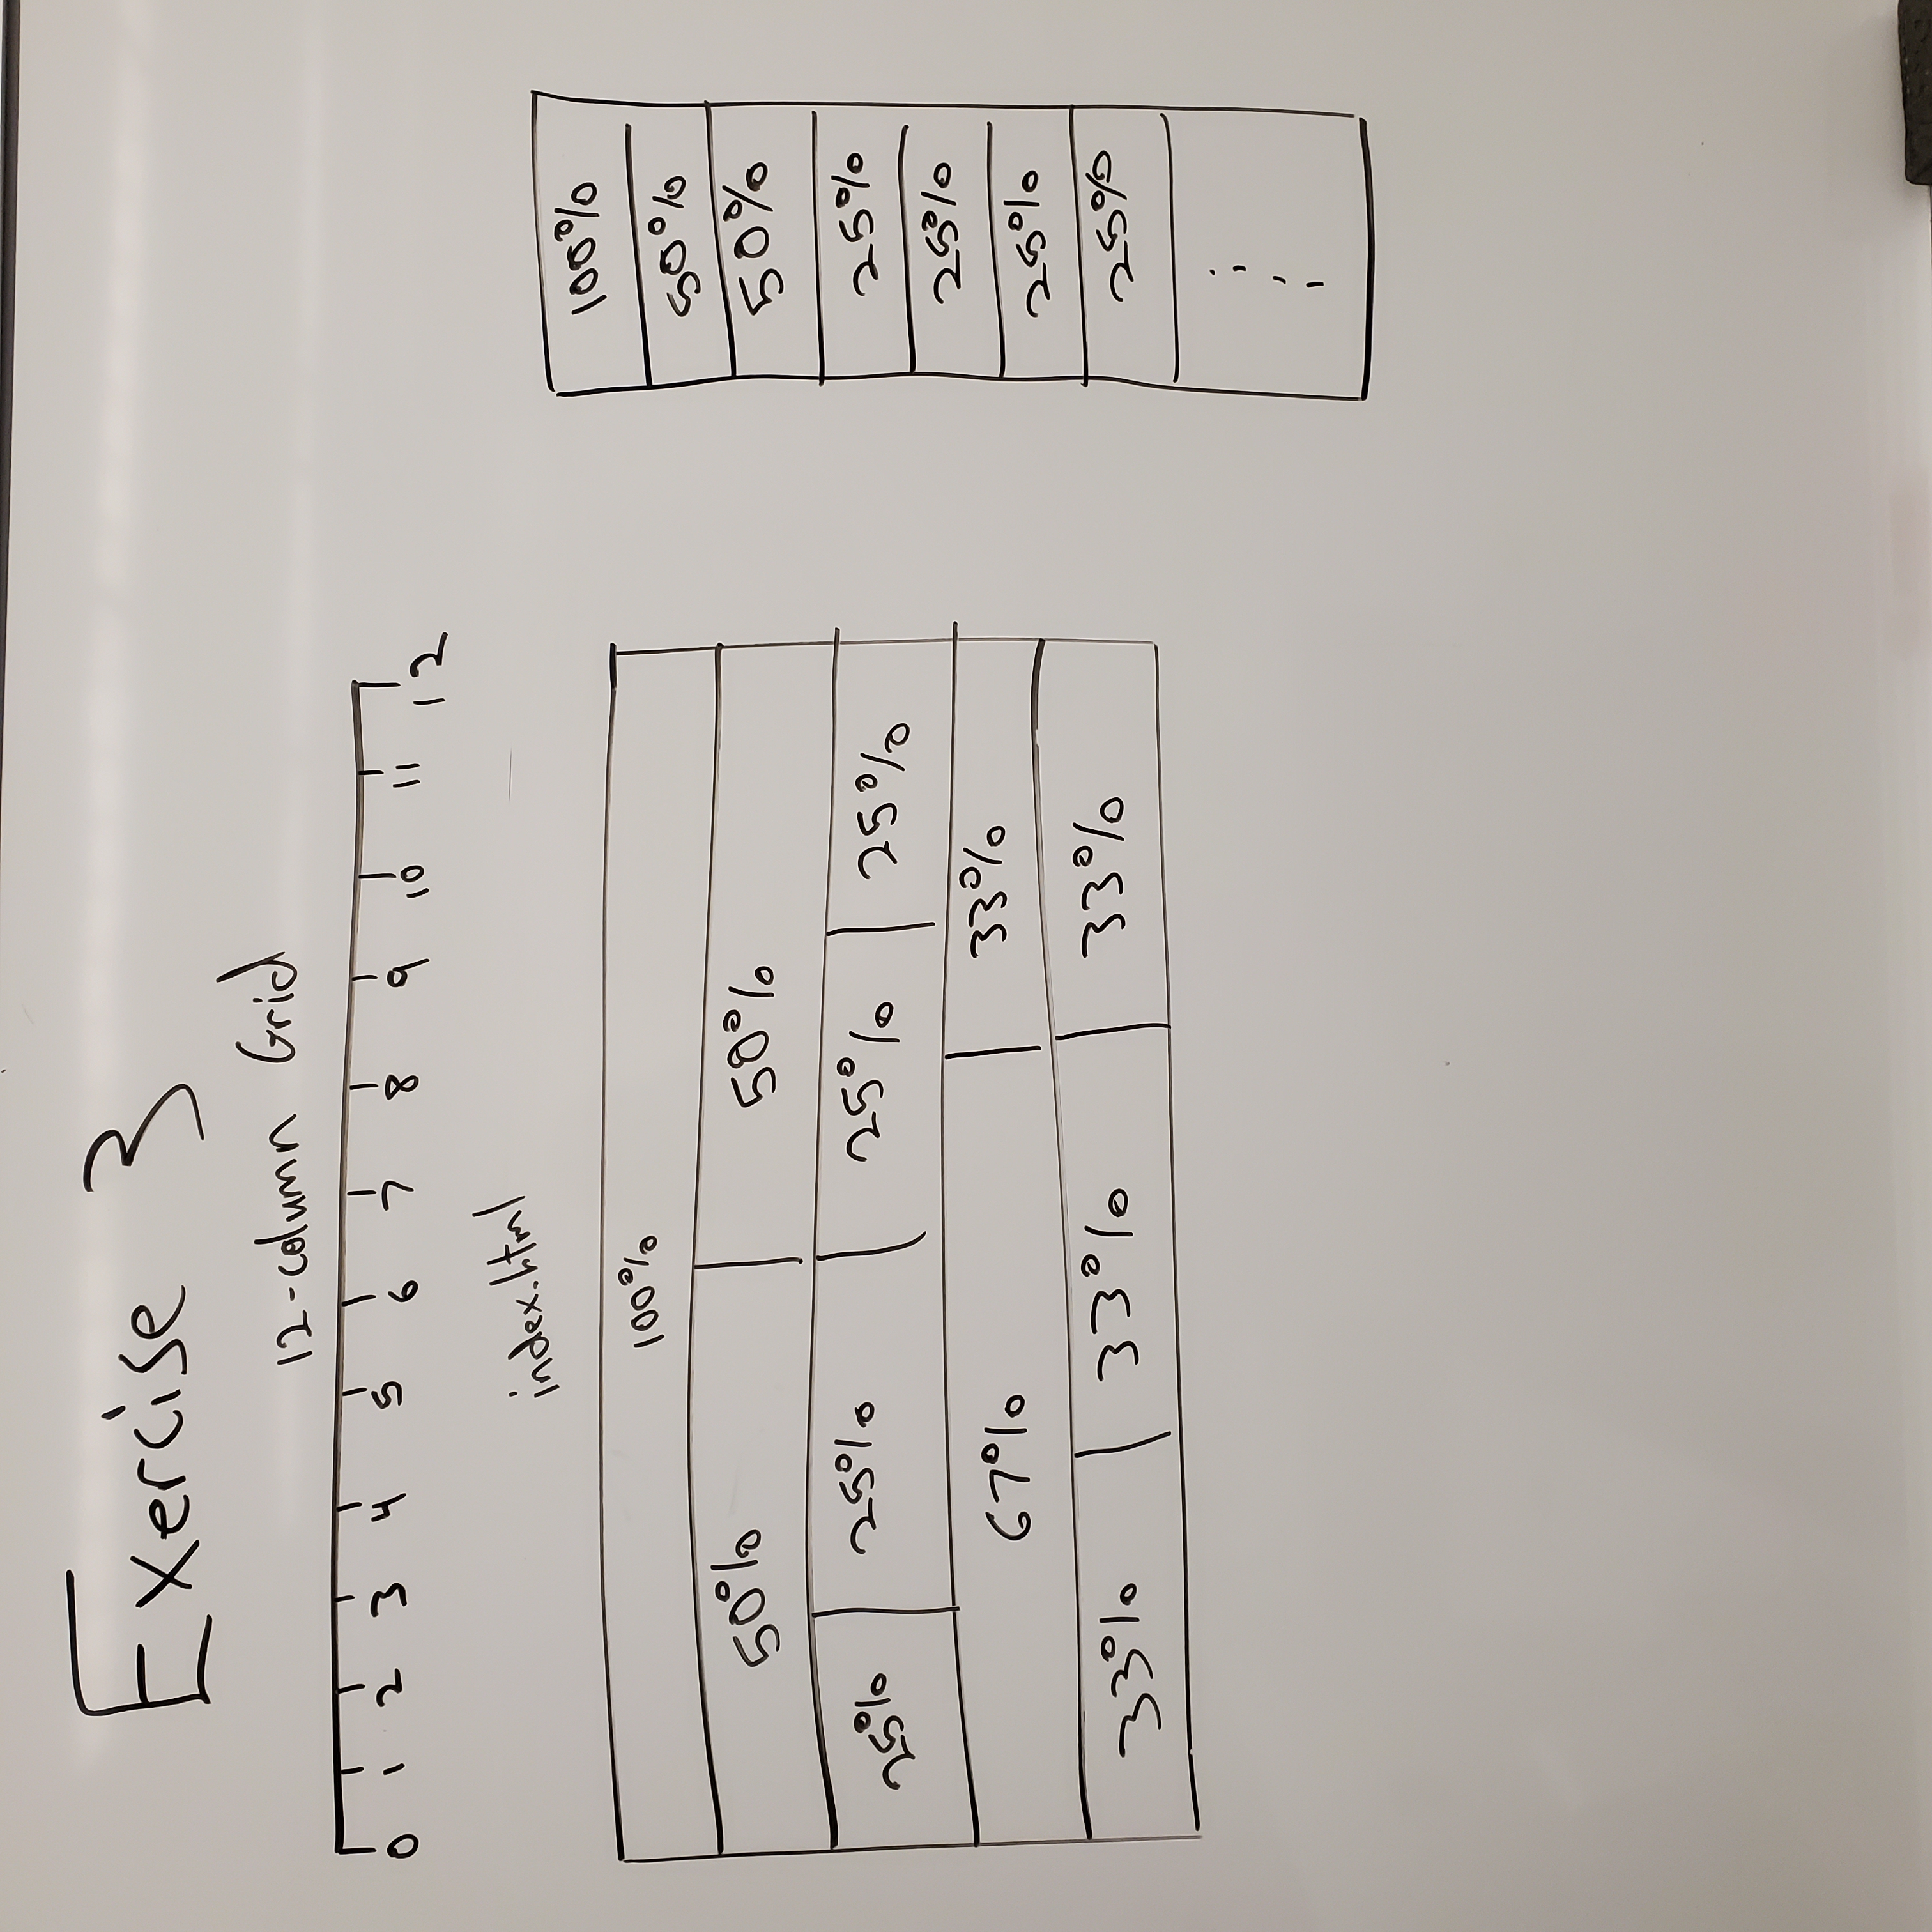 Exercise 3
12-column Grid
0 1 2 3 4 5 6 7 8 9 10 11 12
index.html
100%
50% 50%
25% 25% 25% 25%
67% 33%
33% 33% 33%
100%
50%
50%
25%
25%
25%
25%